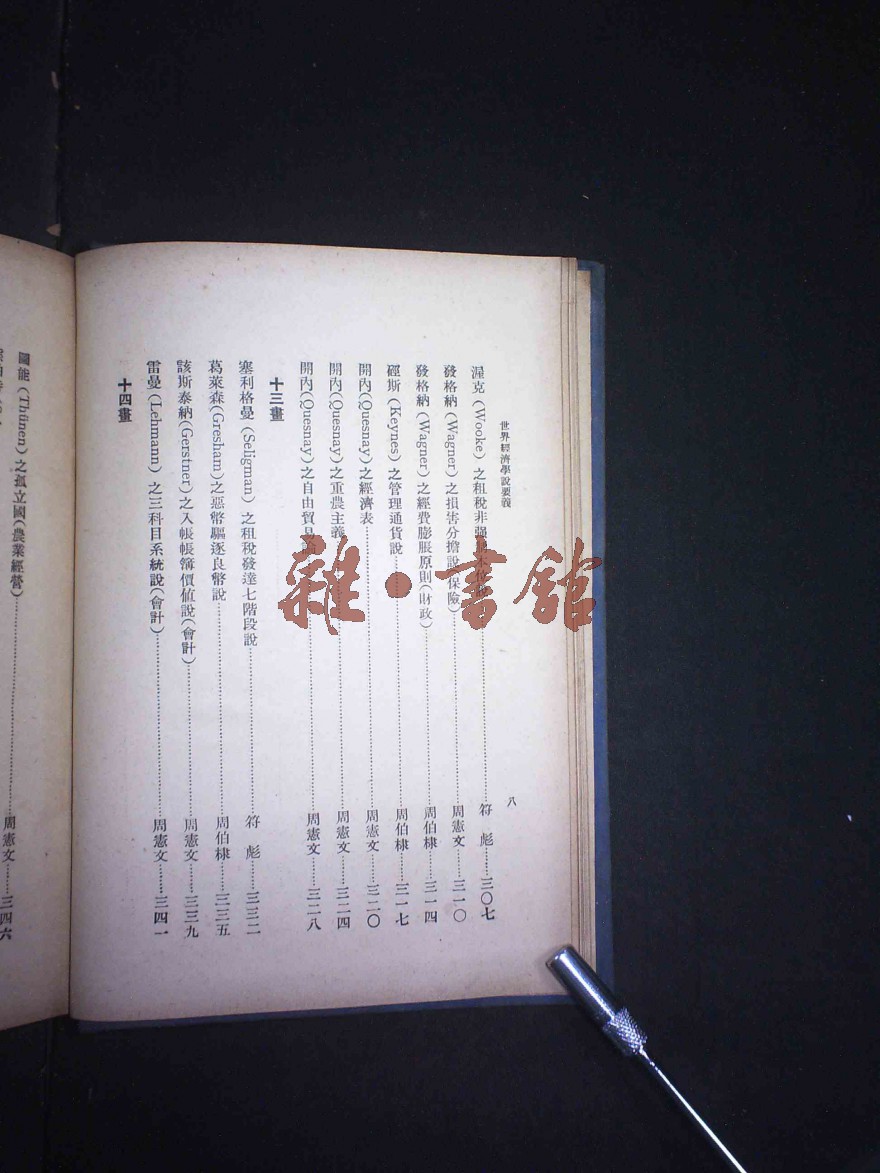 世界經濟學說要義
八
渥克(Wooke)之租稅非強……符彪……三〇七
發格納(Wagner)之損害分擔說(保險)……周憲文……三一〇
發格納(Wagner)之經費膨脹原則(財政)……周伯棣……三一四
硜斯(Keynes)之管理通貨說……周伯棣……三一七
開內(Quesnay)之經濟表……周憲文……三二〇
開內(Quesnay)之重農主義……周憲文……三二四
開內(Quesnay)之自由貿易論……周憲文……三二八
十三畫
塞利格曼(Seligman)之租稅發達七階段說……符彪……三三二
葛萊森(Gresham)之惡幣驅逐良幣說……周伯棣……三三五
該斯泰納(Gerstner)之入帳帳簿價值說(會計)……周憲文……三三九
雷曼(Lehmann)之三科目系統說(會計)……周憲文……三四一
十四畫
圖能(Thünen)之孤立國(農業經營)……周憲文……三四六
雜·書館